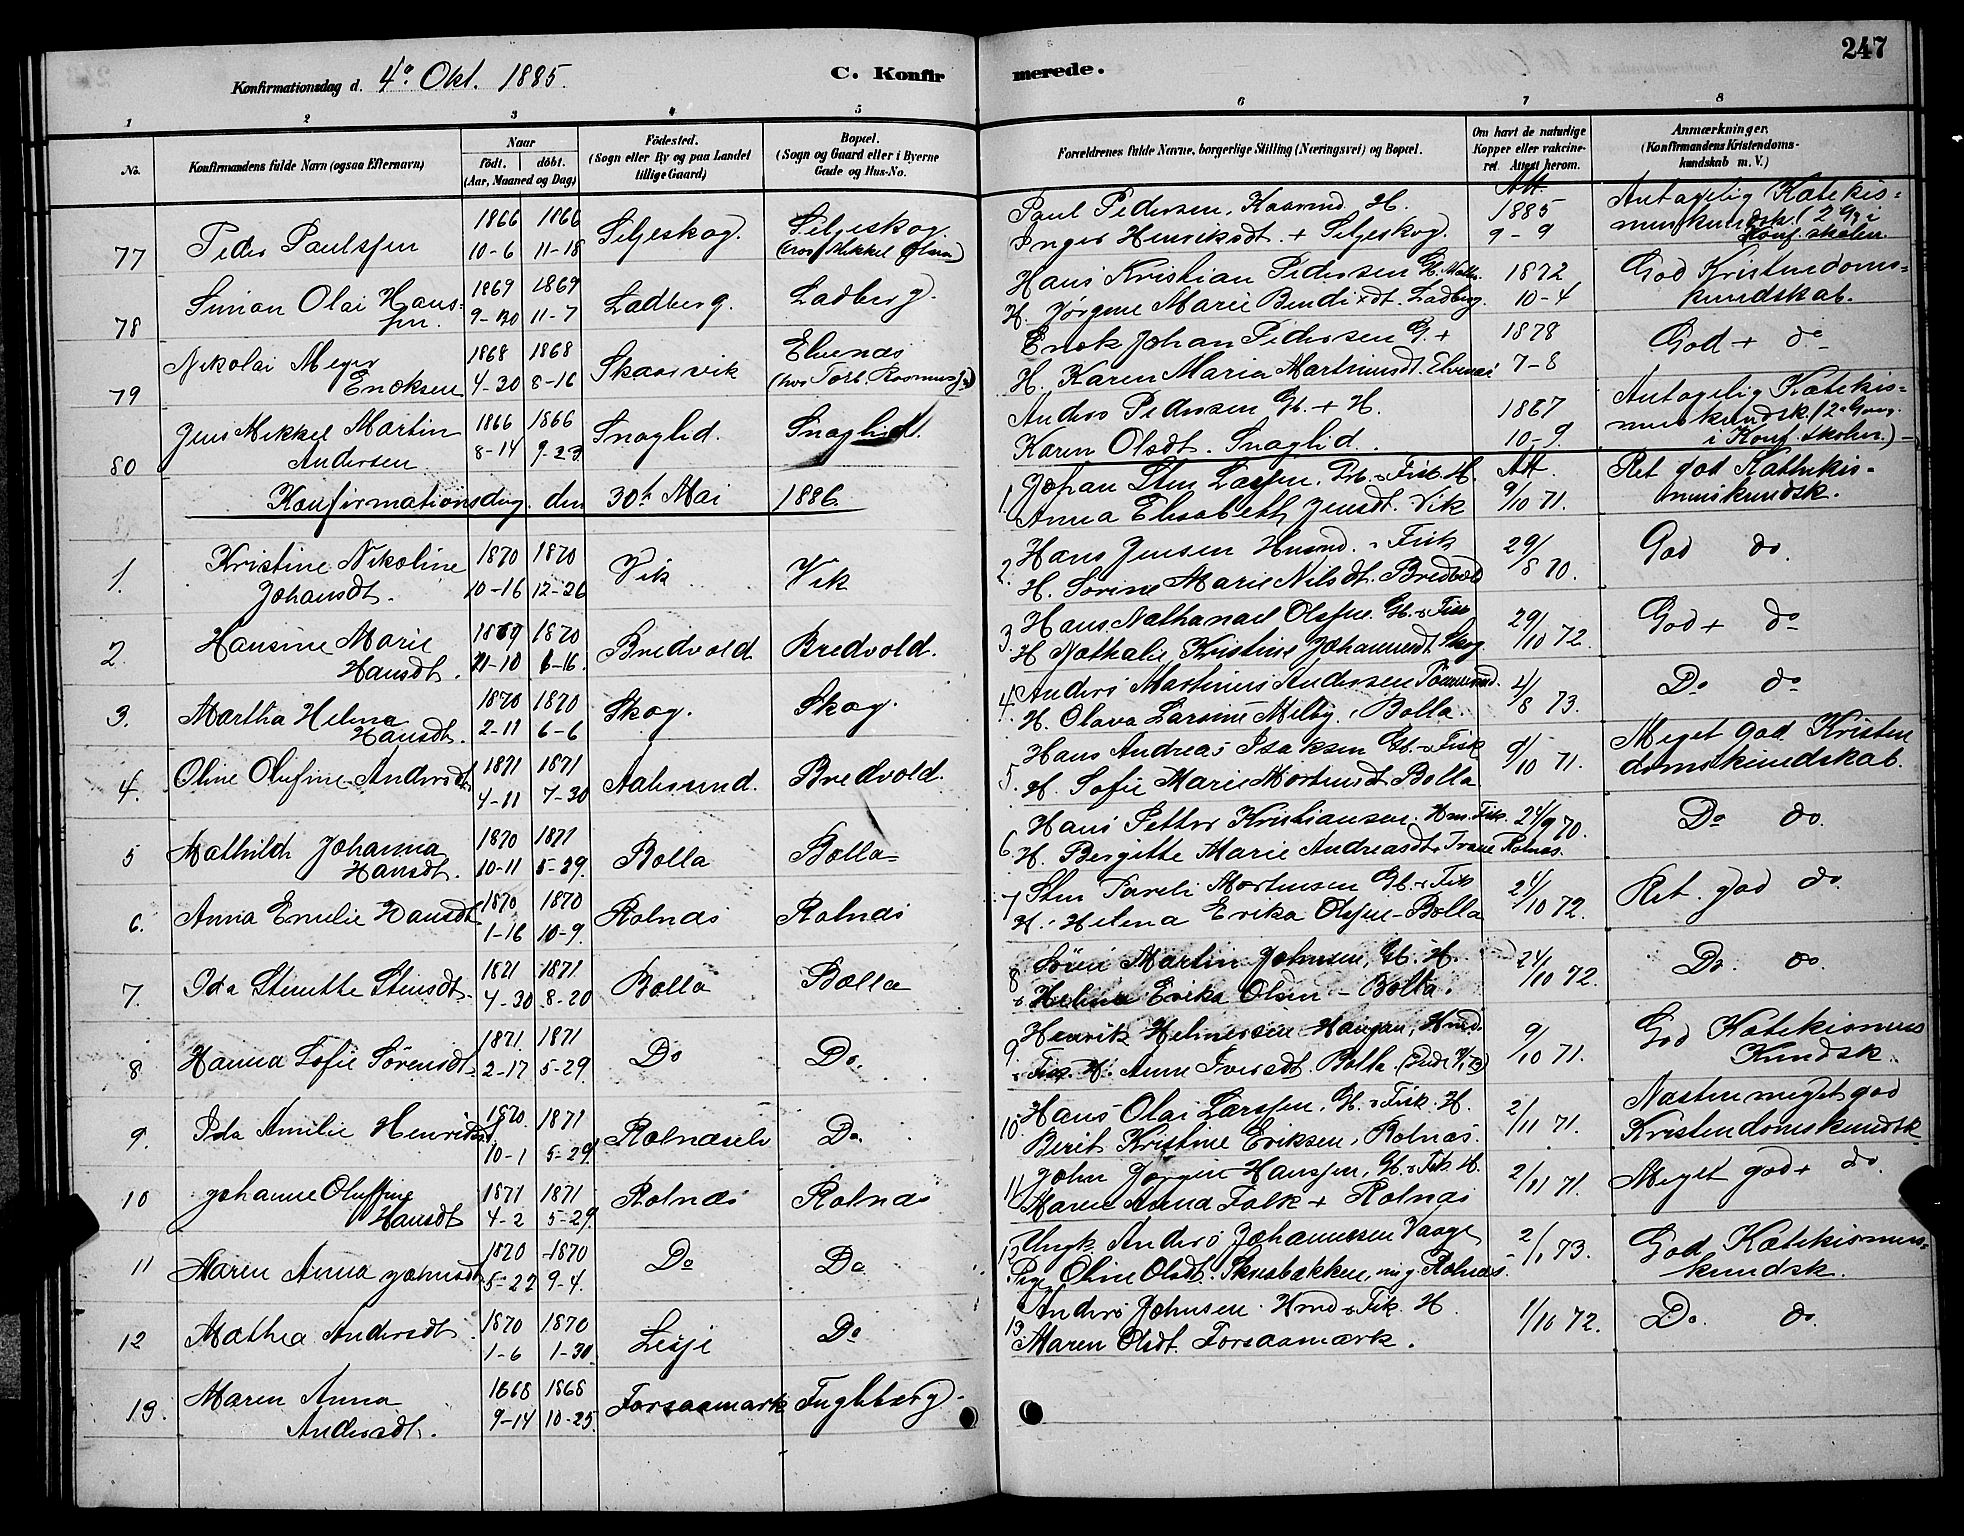 247
Konfirmationsdag d. 4º Okt. 1885.
C. Konfirmerede.
1 2 3 4 5 6 7 8
No.
Konfirmandens fulde Navn (ogsaa Efternavn)
Naar
födt. döbt.
(Aar, Maaned og Dag)
Födested.
(Sogn eller By og paa Landet
tillige Gaard)
Bopæl.
(Sogn og Gaard eller i Byerne
Gade og Hus-No.
Forældrenes fulde Navne, borgerlige Stilling (Næringsvei) og Bopæl.
Om havt de naturlige
Kopper eller vakcine-
ret. Attest herom.
Anmærkninger.
(Konfirmandens Kristendoms-
kundskab m. V.)
77 Peder Paulssen 1866 10-6 1866 11-18 Seljeskog. Seljeskog
(hos Mikkel Olsen)
78 Simon Olai Hans-
sen. 1869 9-30 1869 11-7 Ladberg. Ladberg.
79 Nikolai Meyer
Enoksen 1868 4-30 1868 8-16 Skaarvik Elvenæs
(hos Torb. Rasmuss.)
80 Jens Mikkel Martin
Andersen 1866 8-14 1866 9-23 Snaglid. Snaglid.
Konfirmationsdag den 30h Mai 1886.
1. Kristine Nikoline
Johansdt. 1870 10-16 1870 12-26 Vik Vik
2. Hansine Marie
Hansdt. 1869 11-10 1870 6-16 Bredvold Bredvold.
3. Martha Helma
Hansdt. 1870 2-11 1870 6-6 Skog. Skog.
4. Oline Olufine Andersdt. 1871 4-11 1871 7-30 Aalesund. Bredvold.
5 Mathilde Johanna
Hansdt. 1870 10-11 1871 5-29. Bolla Bolla
6. Anna Emilie Hansdt 1870 1-16 1870 10-9. Rolnæs Rolnæs
7. Ida Stinette Stensdt. 1871 4-30 1871 8-20 Bolla Bolla
8 Hanna Sofie Sørensdt. 1871. 2-17 1871 5-29. Do Do.
9. Ida Amilie Henriksdt 1870. 10-1 1871 5-29. Rolnæseli Do.
10 Johanne Oluffine
Hansdt 1871 4-2 1871 5-29. Rolnæs Rolnæs
11 Maren Anna Johnsdt 1870 5-22 1870 9-4. Do Do
12 Mathea Andersdt. 1870 1-6 1870 1-30. Lesje Do
13. Maren Anna
Andersdt. 1868 9-14 1868 10-25. Forsaamark Fuglberg.
Paul Pedersen, Huusmd. H.
Inger Henriksdt. + Seljeskog. Att. 1885 9-9 Antagelig Katekis-
muskundsk. (2 Gg. i
Konf. skolen.
Hans Kristian Pedersen G.
H. Jørgine Marie Bendixdt. Ladberg. 1872 10-4 God Kristendoms-
kundskab.
Enok Johan Pedersen G. +
H. Karen Maria Martinusdt. Elvenæs 1878 7-8 God + do
Anders Pedersen Gb. + H.
Karen Olsdt. Snaglid. 1867 10-9. Antagelig Katekis-
muskundsk. (2 Gang.
i Konf. skolen.)
1. Johan Sten Larsen, Gb. & Fisk. H.
Anna Elisabeth Jensdt. Vik Att. 9/10 71. Ret god Kathekis-
muskundsk.
2. Hans Jensen Husmd. & Fisk
H. Sorine Marie Nilsdt. Bredvold 29/8 70. God do.
3. Hans Nathanael Olsen. Gb. & Fisk
H Nathalie Kristine Johannesdt Skog 29/10 72. God + do
4. Anders Martinus Andersen
H. Olava Larsine Melby, Bolla. 4/8 73. Do do
5. Hans Andreas Isaksen Gb. & Fisk
H. Sofie Marie Mortensdt. Bolla 9/10 71. Meget god Kristen
domskundskab.
6. Hans Petter Kristiansen. Hm. Fisk.
H. Bergitte Marie Andreasdt. Trane Rolnæs. 24/9 70. Do do.
7 Sten Pareli Mortensen Gb. & Fisk
H. Helena Erika Olsen - Bolla 24/10 72. Ret god do.
8 Søren Martin Johnsen, Gb. H.
Helena Erika Olsen - Bolla. 24/10 72. Do. do.
9. Henrik Helmersen Hansen, Hmd.
& Fisk. H. Anne Iversdt. Bolla. 9/10 71. God Katekismus
Kundsk.
10. Hans Olai Larssen, Gb. & Fisk. H.
Berit Kristine Eriksen, Rolnæs. 2/11 71. Næsten meget god
Kristendomskundsk.
11 John Jørgen Hanssen, Gb. & Fisk. H.
Maren Anna Falk + Rolnæs 2/11 71. Meget god + do.
12 Ungk. Anders Johannessen Vaage
Pige Oline Olsdt. Skusbakken, nu g. Rolnæs. 2/1 73. God Katekismus-
kundsk.
13 Anders Johnsen. Hmd & Fisk. H.
Maren Olsdt. Forsaamark. 1/10 72. Do. do.